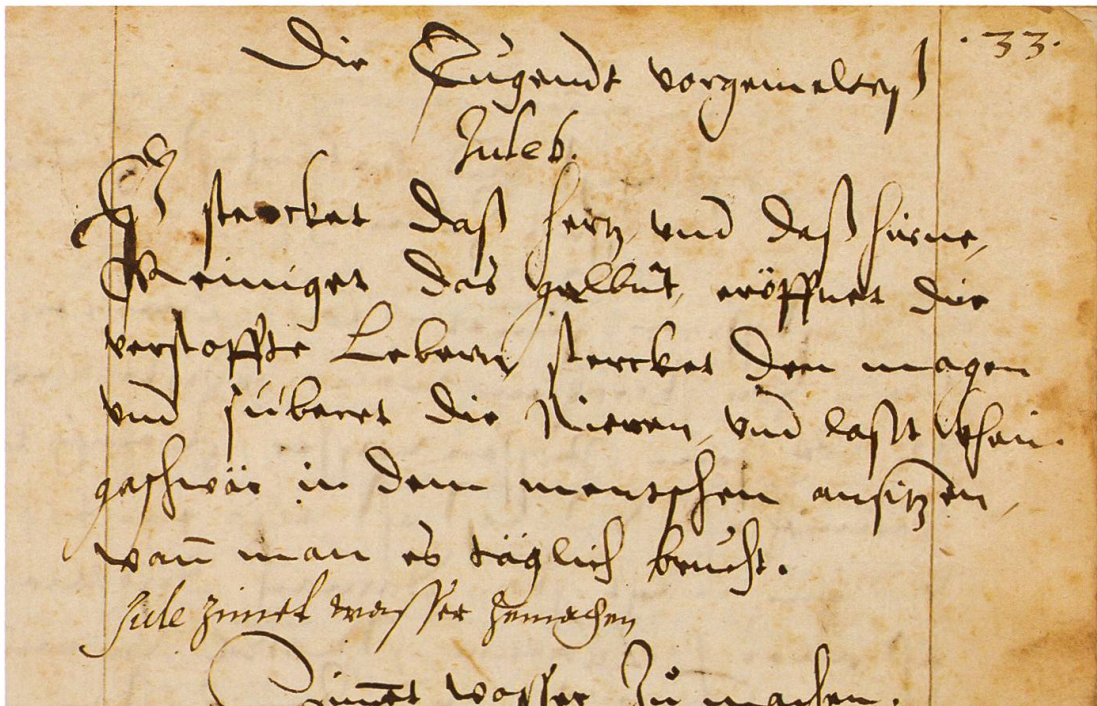 · 33 ·
Die Tugendt vorgemelten
Juleb.
Er sterckt das hertz, und daß hirne,
Reiniget das geblüt, eröffnet die
verstoffte Lebern, stercket den magen
und süberet die Nieren, und lasst khein
geschwär in dem menschen ansitzen,
wan̄ man es täglich brucht.
zimet wasser zemachen
Zimet wasser zů machen.